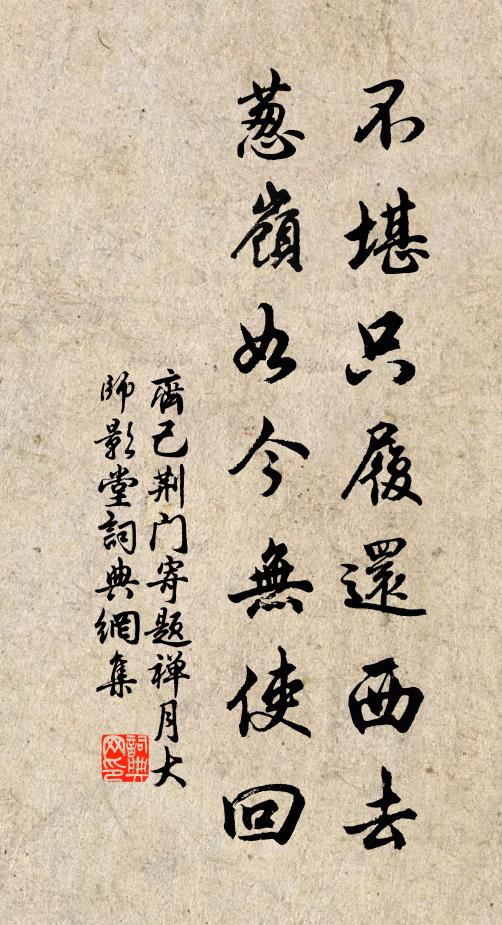 不堪只履還西去
葱嶺如今無使回
齊己荆门寄题禅月大
師影堂詞典網集
詞典网印